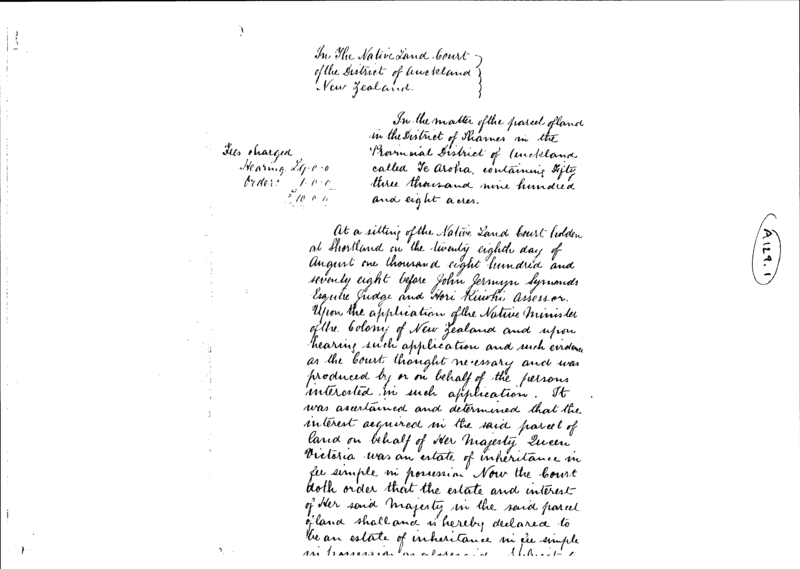 In The Native Land Court
of the District of Auckland
New Zealand.
In the matter of the parcel of land
in the District of Thames in the
Provincial District of Auckland
called Te Aroha, containing Fifty
three thousand nine hundred
and eight acres.
Fees charged
Hearing £9.0.0
Order: 1.0.0
£10.0.0
At a sitting of the Native Land Court holden
at Shortland on the twenty eighth day of
August one thousand eight hundred and
seventy eight before John Jermyn Symonds
Esquire Judge and Hori Assessor.
Upon the application of the Native Minister
of the Colony of New Zealand and upon
hearing such application and such evidence
as the Court thought necessary and was
produced by or on behalf of the persons
interested in such application. It
was ascertained and determined that the
interest acquired in the said parcel of
land on behalf of Her Majesty Queen
Victoria was an estate of inheritance in
fee simple in possession Now the Court
doth order that the estate and interest
of Her said Majesty in the said parcel
of land shall and is hereby declared to
be an estate of inheritance in fee simple
in possession as aforesaid
A129.1